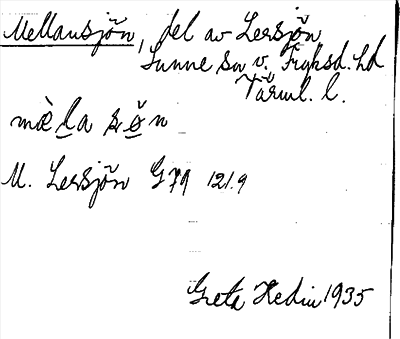 Mellansjön, del av Lersjön
Sunne sn v. Fryksd. hd
Värml. l.
mæ̀ l̲a sø̲̆n
M. Lersjön G79 121.9
Greta Hedin 1935